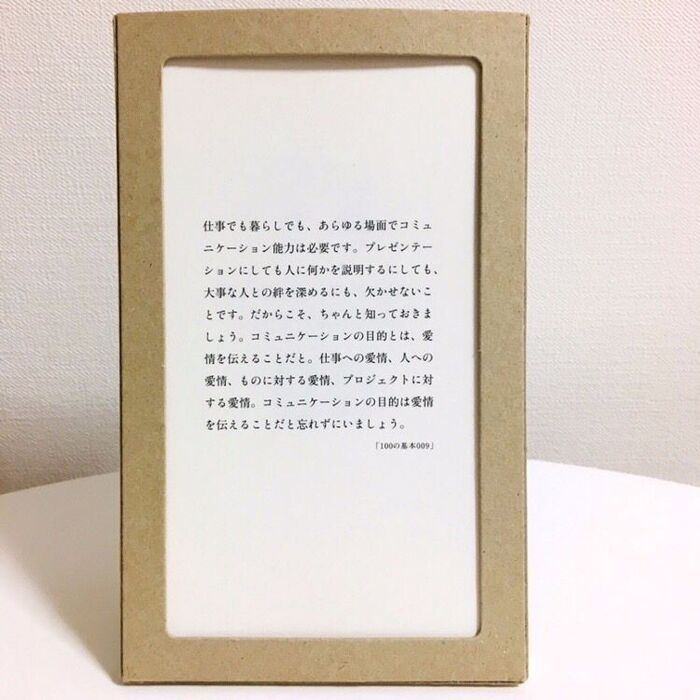 仕事でも暮らしでも、あらゆる場面でコミュ
ニケーション能力は必要です。プレゼンテー
ションにしても人に何かを説明するにしても、
大事な人との絆を深めるにも、欠かせないこ
とです。だからこそ、ちゃんと知っておきま
しょう。コミュニケーションの目的とは、愛
情を伝えることだと。仕事への愛情、人への
愛情、ものに対する愛情、プロジェクトに対
する愛情。コミュニケーションの目的は愛情
を伝えることだと忘れずにいましょう。
「100の基本009」